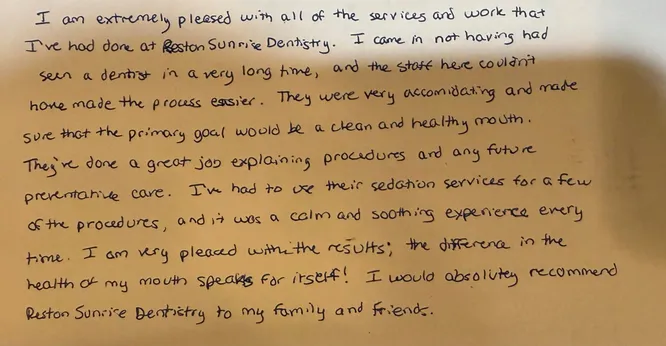 I am extremely pleased with all of the services and work that
I've had done at Reston Sunrise Dentistry. I came in not having had
seen a dentist in a very long time, and the staff here couldn't
have made the process easier. They were very accomidating and made
sure that the primary goal would be a clean and healthy mouth.
They've done a great job explaining procedures and any future
preventative care. I've had to use their sedation services for a few
of the procedures, and it was a calm and soothing experience every
time. I am very pleaced with the results; the difference in the
health of my mouth speaks for itself! I would absolutey recommend
Reston Sunrise Dentistry to my family and friends.